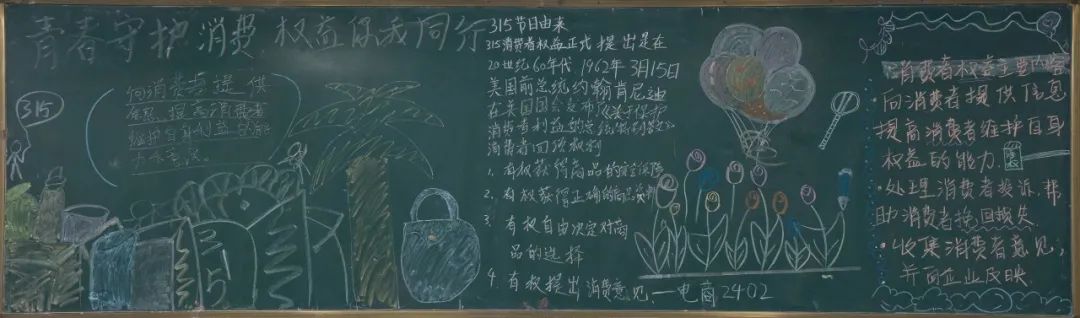 青春守护消费 权益你我同行
315
向消费者提供
信息,提高消费者
维护自身利益的能
力
315
315节日由来
315消费者权益正式提出是在
20世纪60年代 1962年3月15日
美国前总统约翰肯尼迪
在美国国会发布《关于保护
消费者利益的总统特别咨文》
消费者四项权利
1、有权获得商品的安全保障
2、有权获得正确的商品资料
3、有权自由决定对商
品的选择
4、有权提出消费意见
一电商2402
消费者权益主要内容
·向消费者提供信息
提高消费者维护自身
权益的能力.
·处理消费者投诉,帮
助消费者挽回损失.
·收集消费者意见,
并向企业反映.